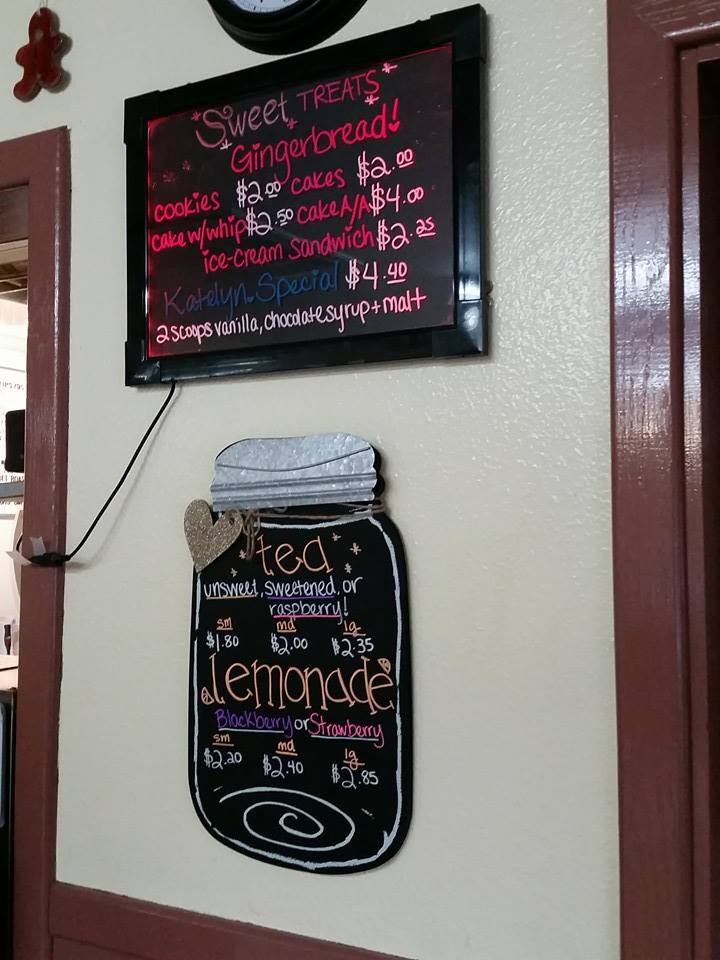 Sweet TREATS
Gingerbread!
cookies $2.00 cakes $2.00
cake w/whip $2.50 cake A/A $4.00
ice-cream sandwich $2.25
Katelyn Special $4.40
2 scoops vanilla, chocolate syrup + malt
tea
unsweet, sweetened, or
raspberry!
sm md lg
$1.80 $2.00 $2.35
Lemonade
Blackberry or Strawberry
sm md lg
$2.20 $2.40 $2.85